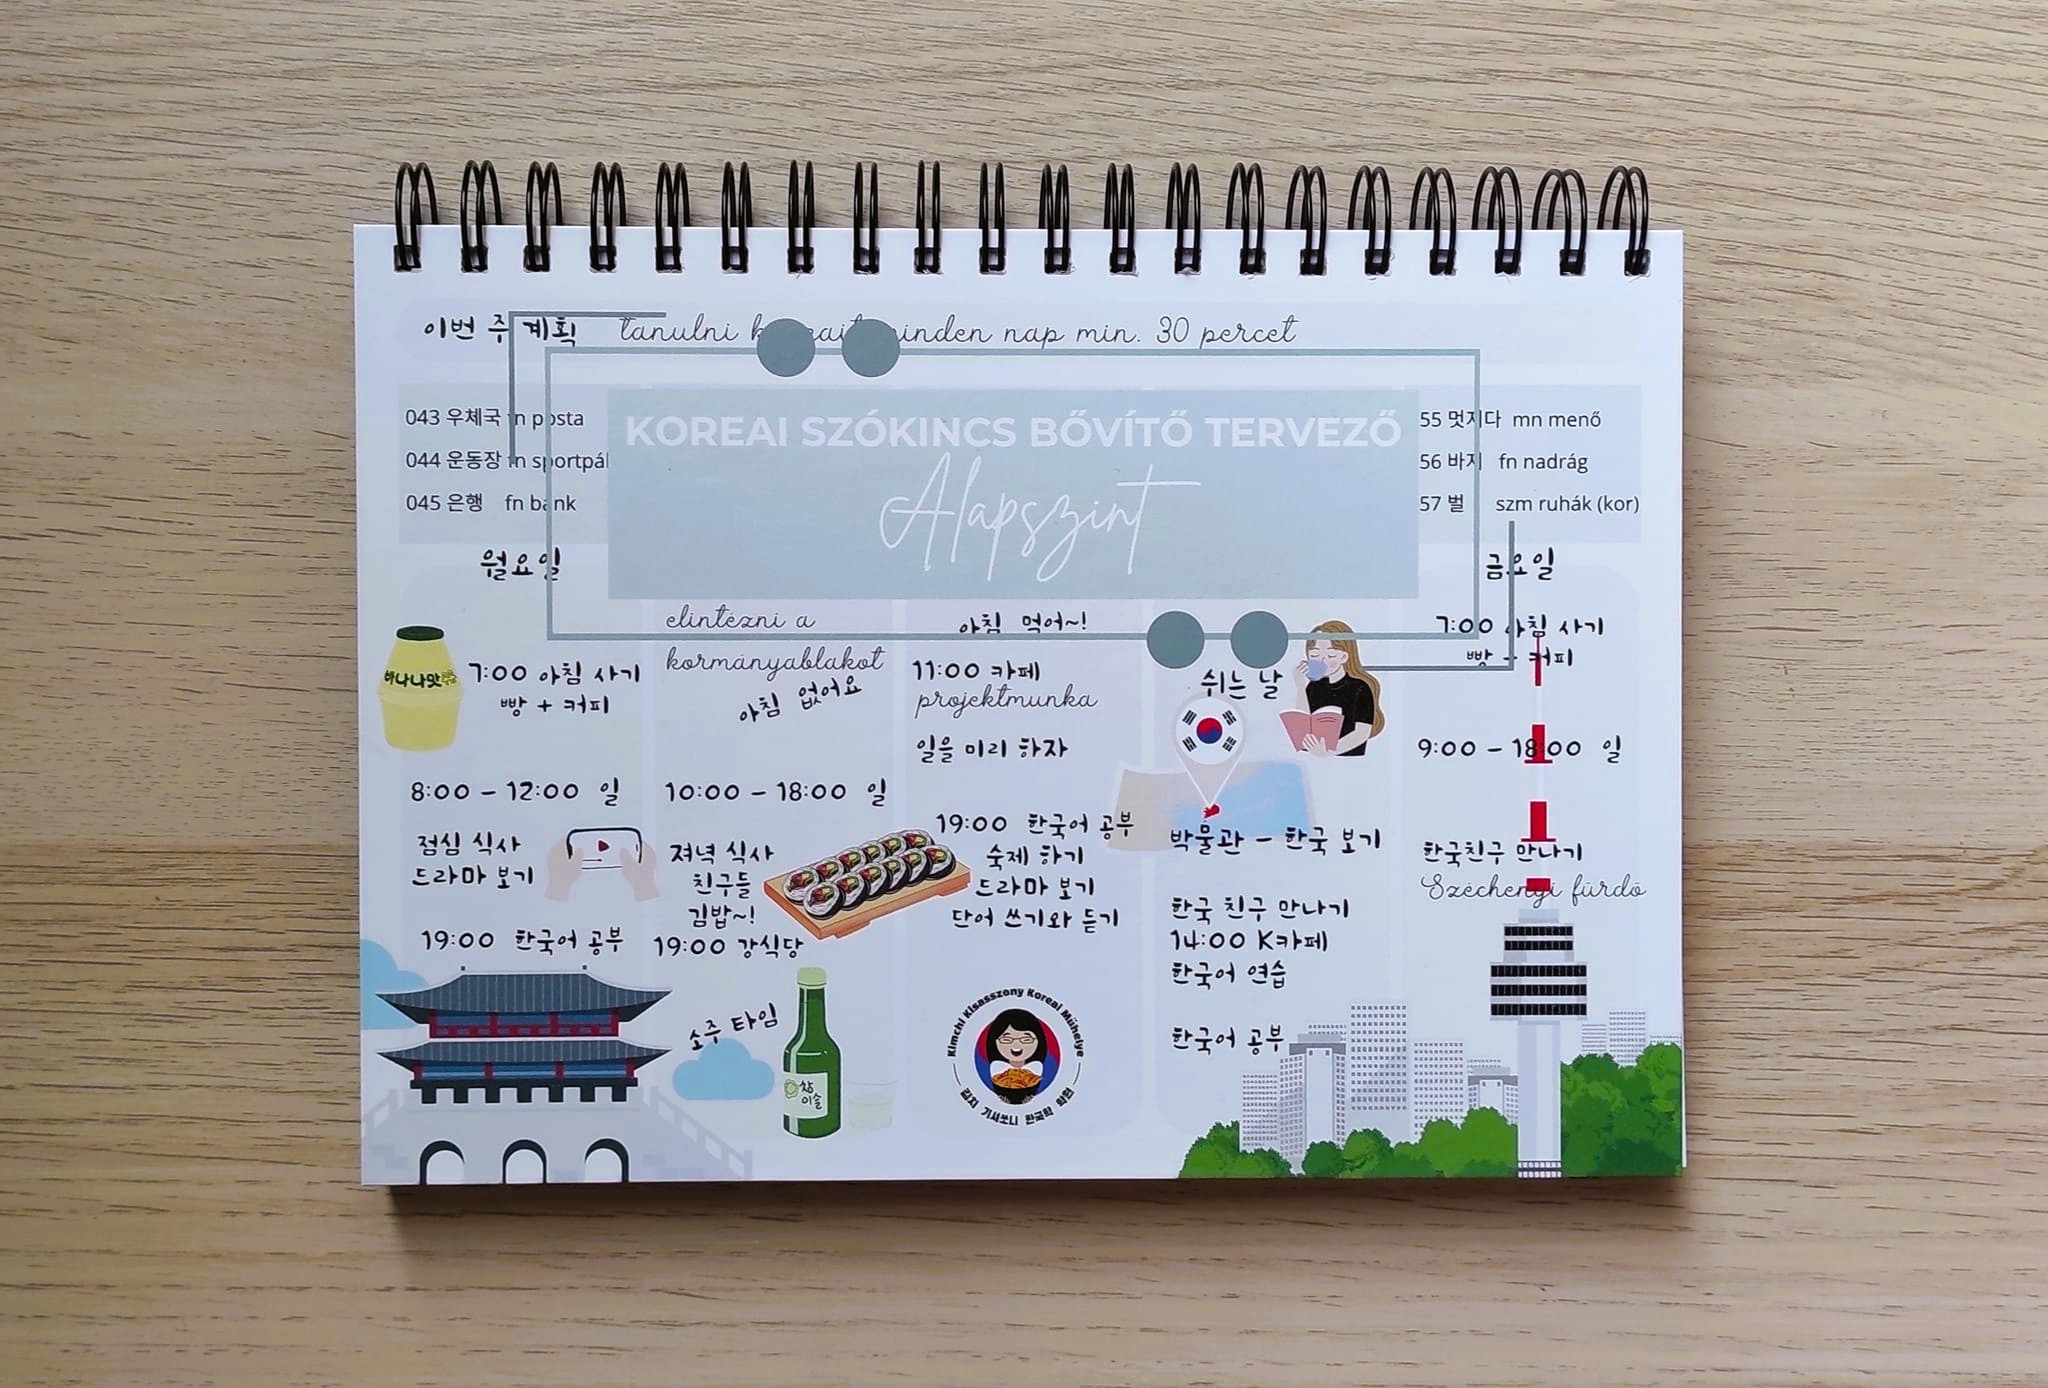 이번 주 계획 tanulni minden nap min. 30 percet
KOREAI SZÓKINCS BŐVÍTŐ TERVEZŐ
Alapszint
043 우체국 fn posta
044 운동장 fn sportpál
045 은행 fn bank
55 멋지다 mn menő
56 바지 fn nadrág
57 벌 szm ruhák (kor)
월요일
바나나맛
7:00 아침 사기
빵 + 커피
8:00 - 12:00 일
점심 식사
드라마 보기
19:00 한국어 공부
elintézni a
kormányablakot
아침 없어요
10:00 - 18:00 일
져녁 식사
친구들
김밥~!
19:00 강식당
소주 타임
참
이슬
아침 먹어~!
11:00 카페
projektmunka
일을 미리 하자
19:00 한국어 공부
숙제 하기
드라마 보기
단어 쓰기와 듣기
Kimchi Kisasszony Koreai Műhelye
김치 기셔쏘니 한국학 학원
쉬는 날
박물관 - 한국 보기
한국 친구 만나기
14:00 K카페
한국어 연습
한국어 공부
금요일
7:00 아침 사기
빵 + 커피
9:00 - 18:00 일
한국친구 만나기
Széchenyi fürdő